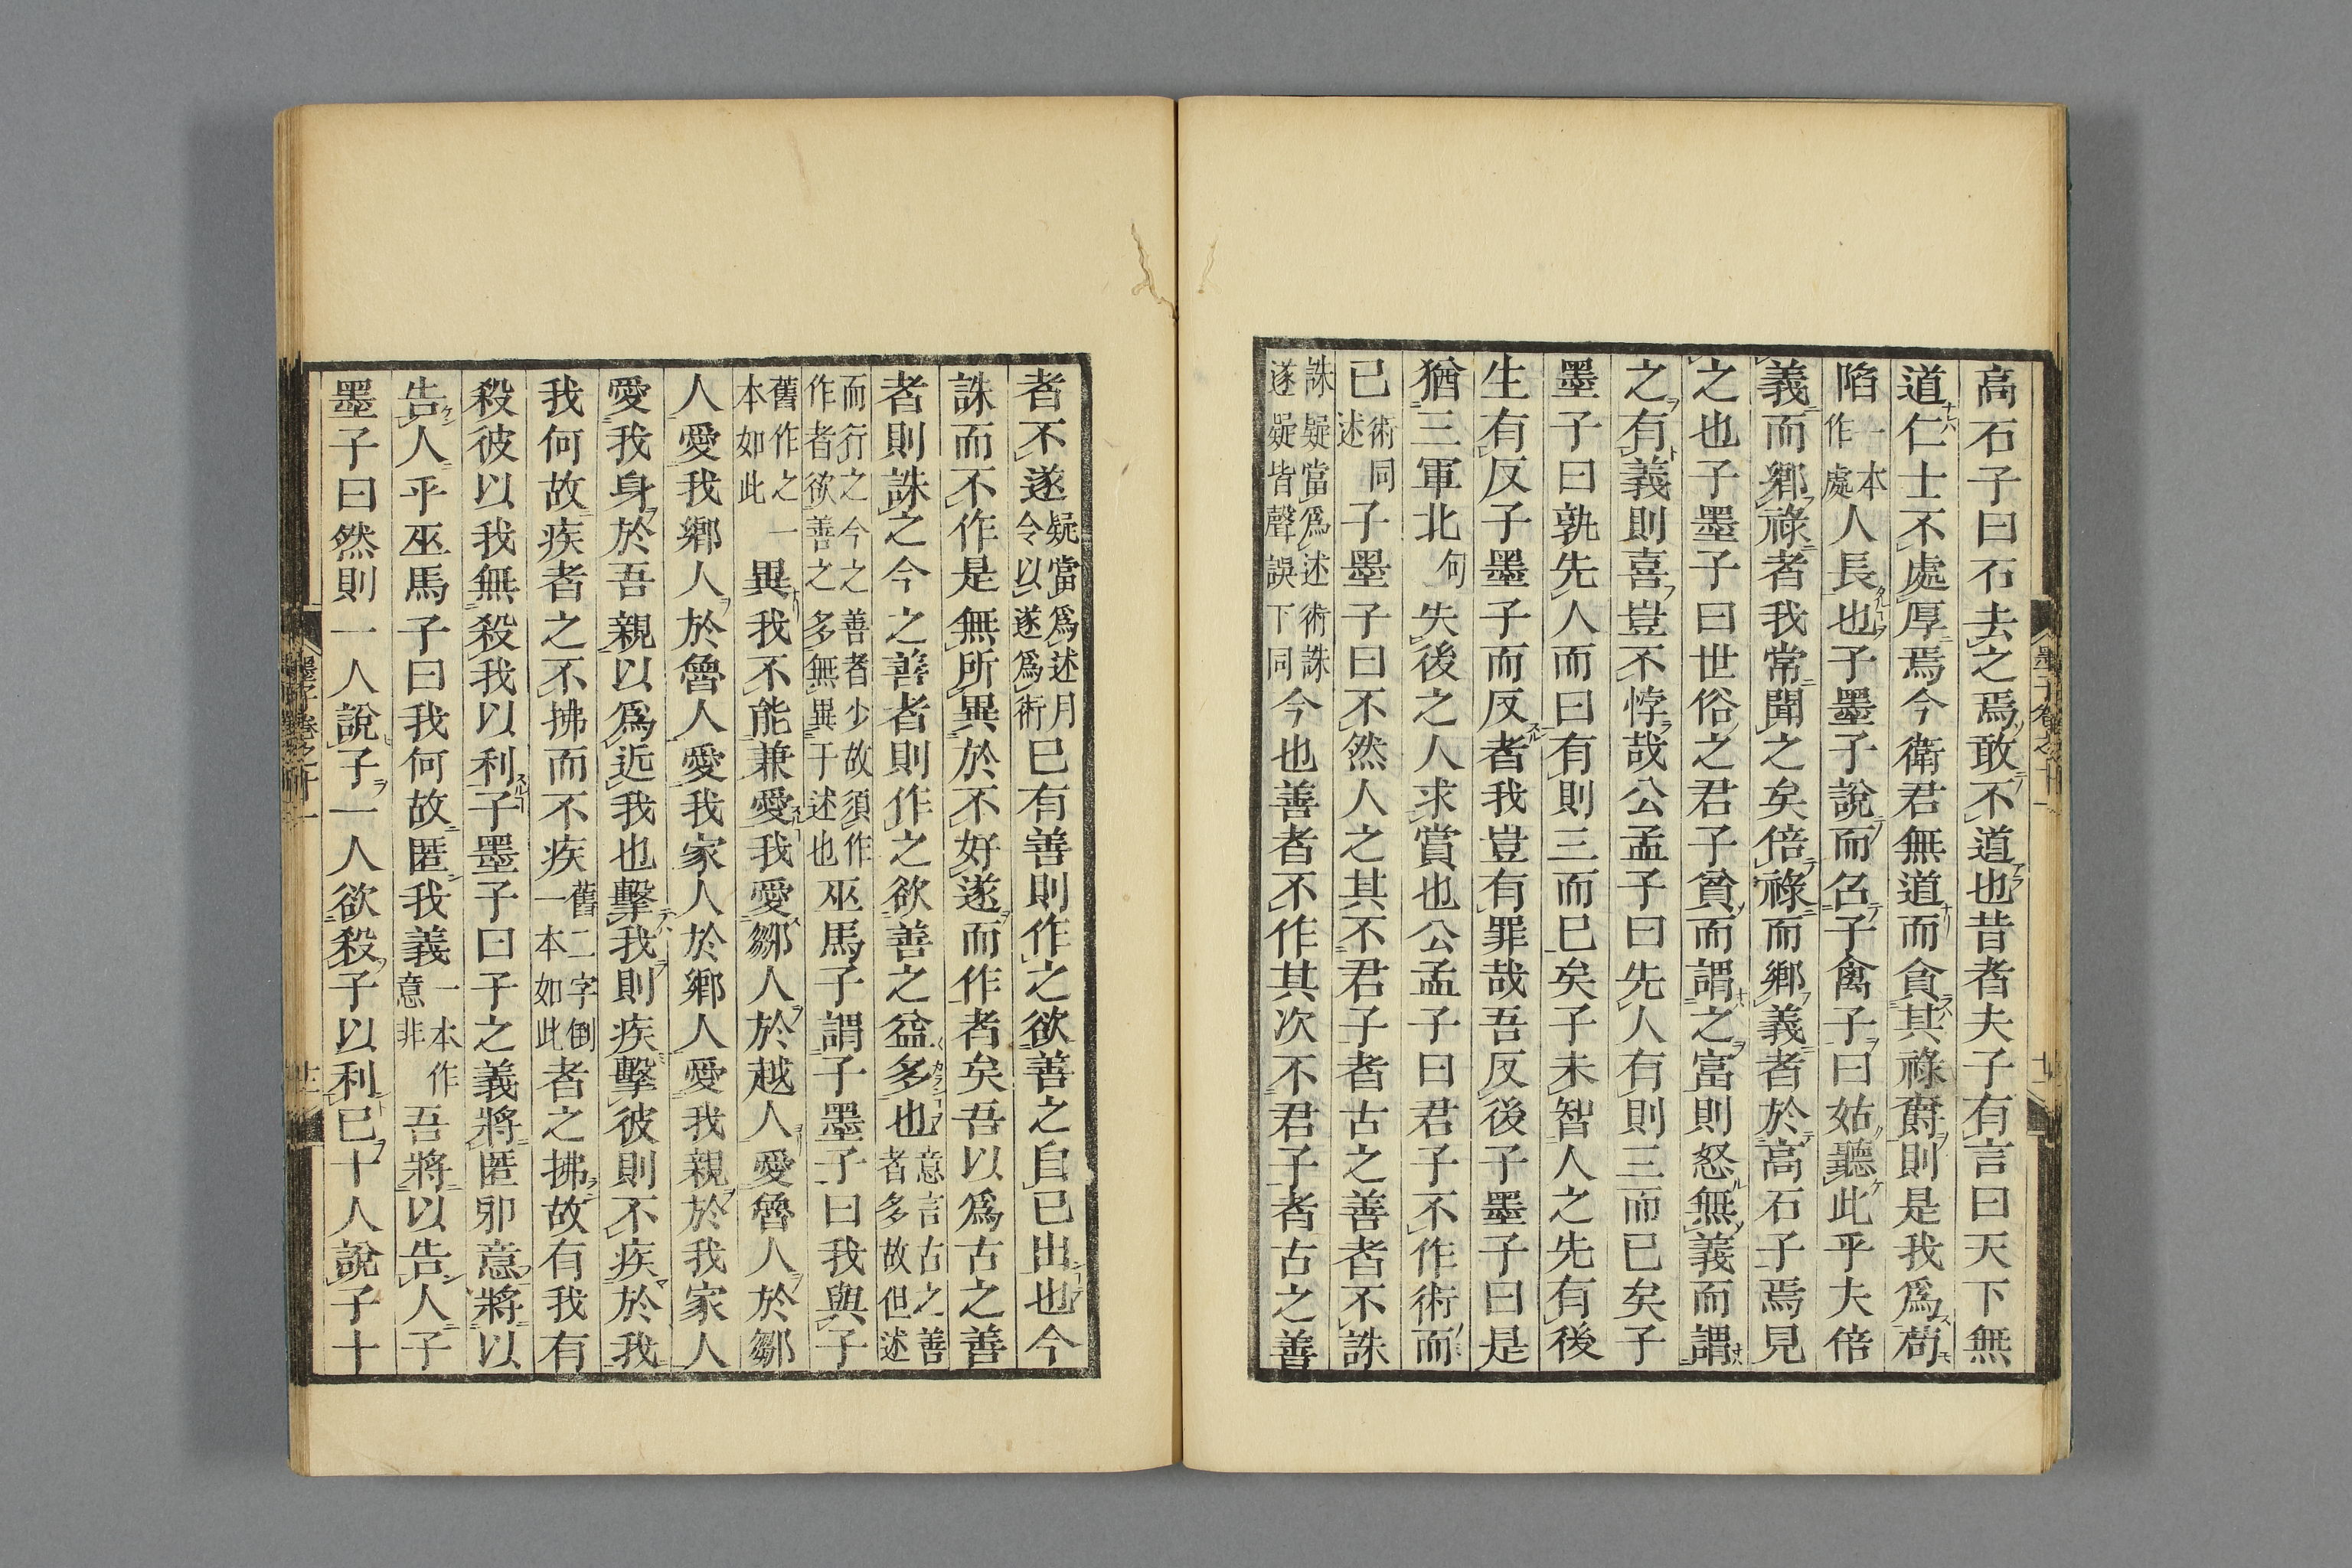 高石子曰石去之焉敢不道也昔者夫子有言曰天下無
道仁士不處厚焉今衛君無道而貪其祿爵則是我爲苟
陷一本作處人長也子墨子說而召子禽子曰姑聽此乎夫倍
義而鄉祿者我常聞之矣倍祿而鄉義者於高石子焉見
之也子墨子曰世俗之君子貧而謂之富則怒無義而謂
之有義則喜豈不悖哉公孟子曰先人有則三而已矣子
墨子曰孰先人而曰有則三而已矣子未智人之先有後
生有反子墨子而反者我豈有罪哉吾反後子墨子曰是
猶三軍北句失後之人求賞也公孟子曰君子不作術而
已術同述子墨子曰不然人之其不君子者古之善者不誅
誅疑當爲述術誅遂疑皆聲誤下同今也善者不作其次不君子者古之善
者不遂疑當爲述月令以遂爲術已有善則作之欲善之自已出也今
誅而不作是無所異於不好遂而作者矣吾以爲古之善
者則誅之今之善者則作之欲善之益多也意言古之善者多故但述
而行之今之善者少故須作作者欲善之多無異于述也巫馬子謂子墨子曰我與子
舊作之一本如此異我不能兼愛我愛鄒人於越人愛魯人於鄒
人愛我鄉人於魯人愛我家人於鄉人愛我親於我家人
愛我身於吾親以爲近我也擊我則疾擊彼則不疾於我
我何故疾者之不拂而不疾舊二字倒一本如此者之拂故有我有
殺彼以我無殺我以利子墨子曰子之義將匿邪意將以
告人乎巫馬子曰我何故匿我義一本作意非吾將以告人子
墨子曰然則一人說子一人欲殺子以利已十人說子十
墨子卷之十一
十二